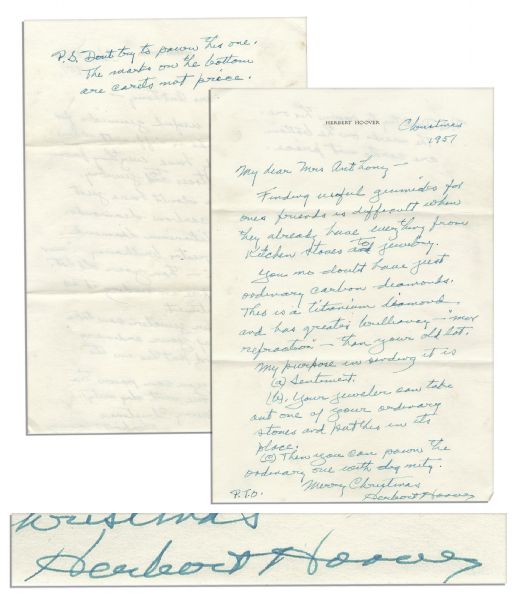 P.S. Dont try to pawn this one.
The marks on the bottom
are carets not price.
HERBERT HOOVER
Christmas
1951
My dear Mrs Anthony —
Finding useful gimmicks for
ones friends is difficult when
they already have everything from
Kitchen Stoves to jewelry.
You no doubt have just
ordinary carbon diamonds.
This is a titanium diamond
and has greater brilliancy – "
refraction" – than your old lot.
My purpose in sending it is
(a) Sentiment.
(b). Your jeweler can take
out one of your ordinary
stones and put this in its
place.
(c) Then you can pawn the
ordinary one with dignity.
Merry Christmas
Herbert Hoover
P.T.O.
Christmas
Herbert Hoover